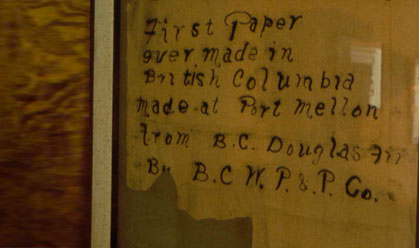 First Paper
ever made in
British Columbia
made at Port Mellon
from B.C. Douglas Fir
By B.C W. P. & P. Co.